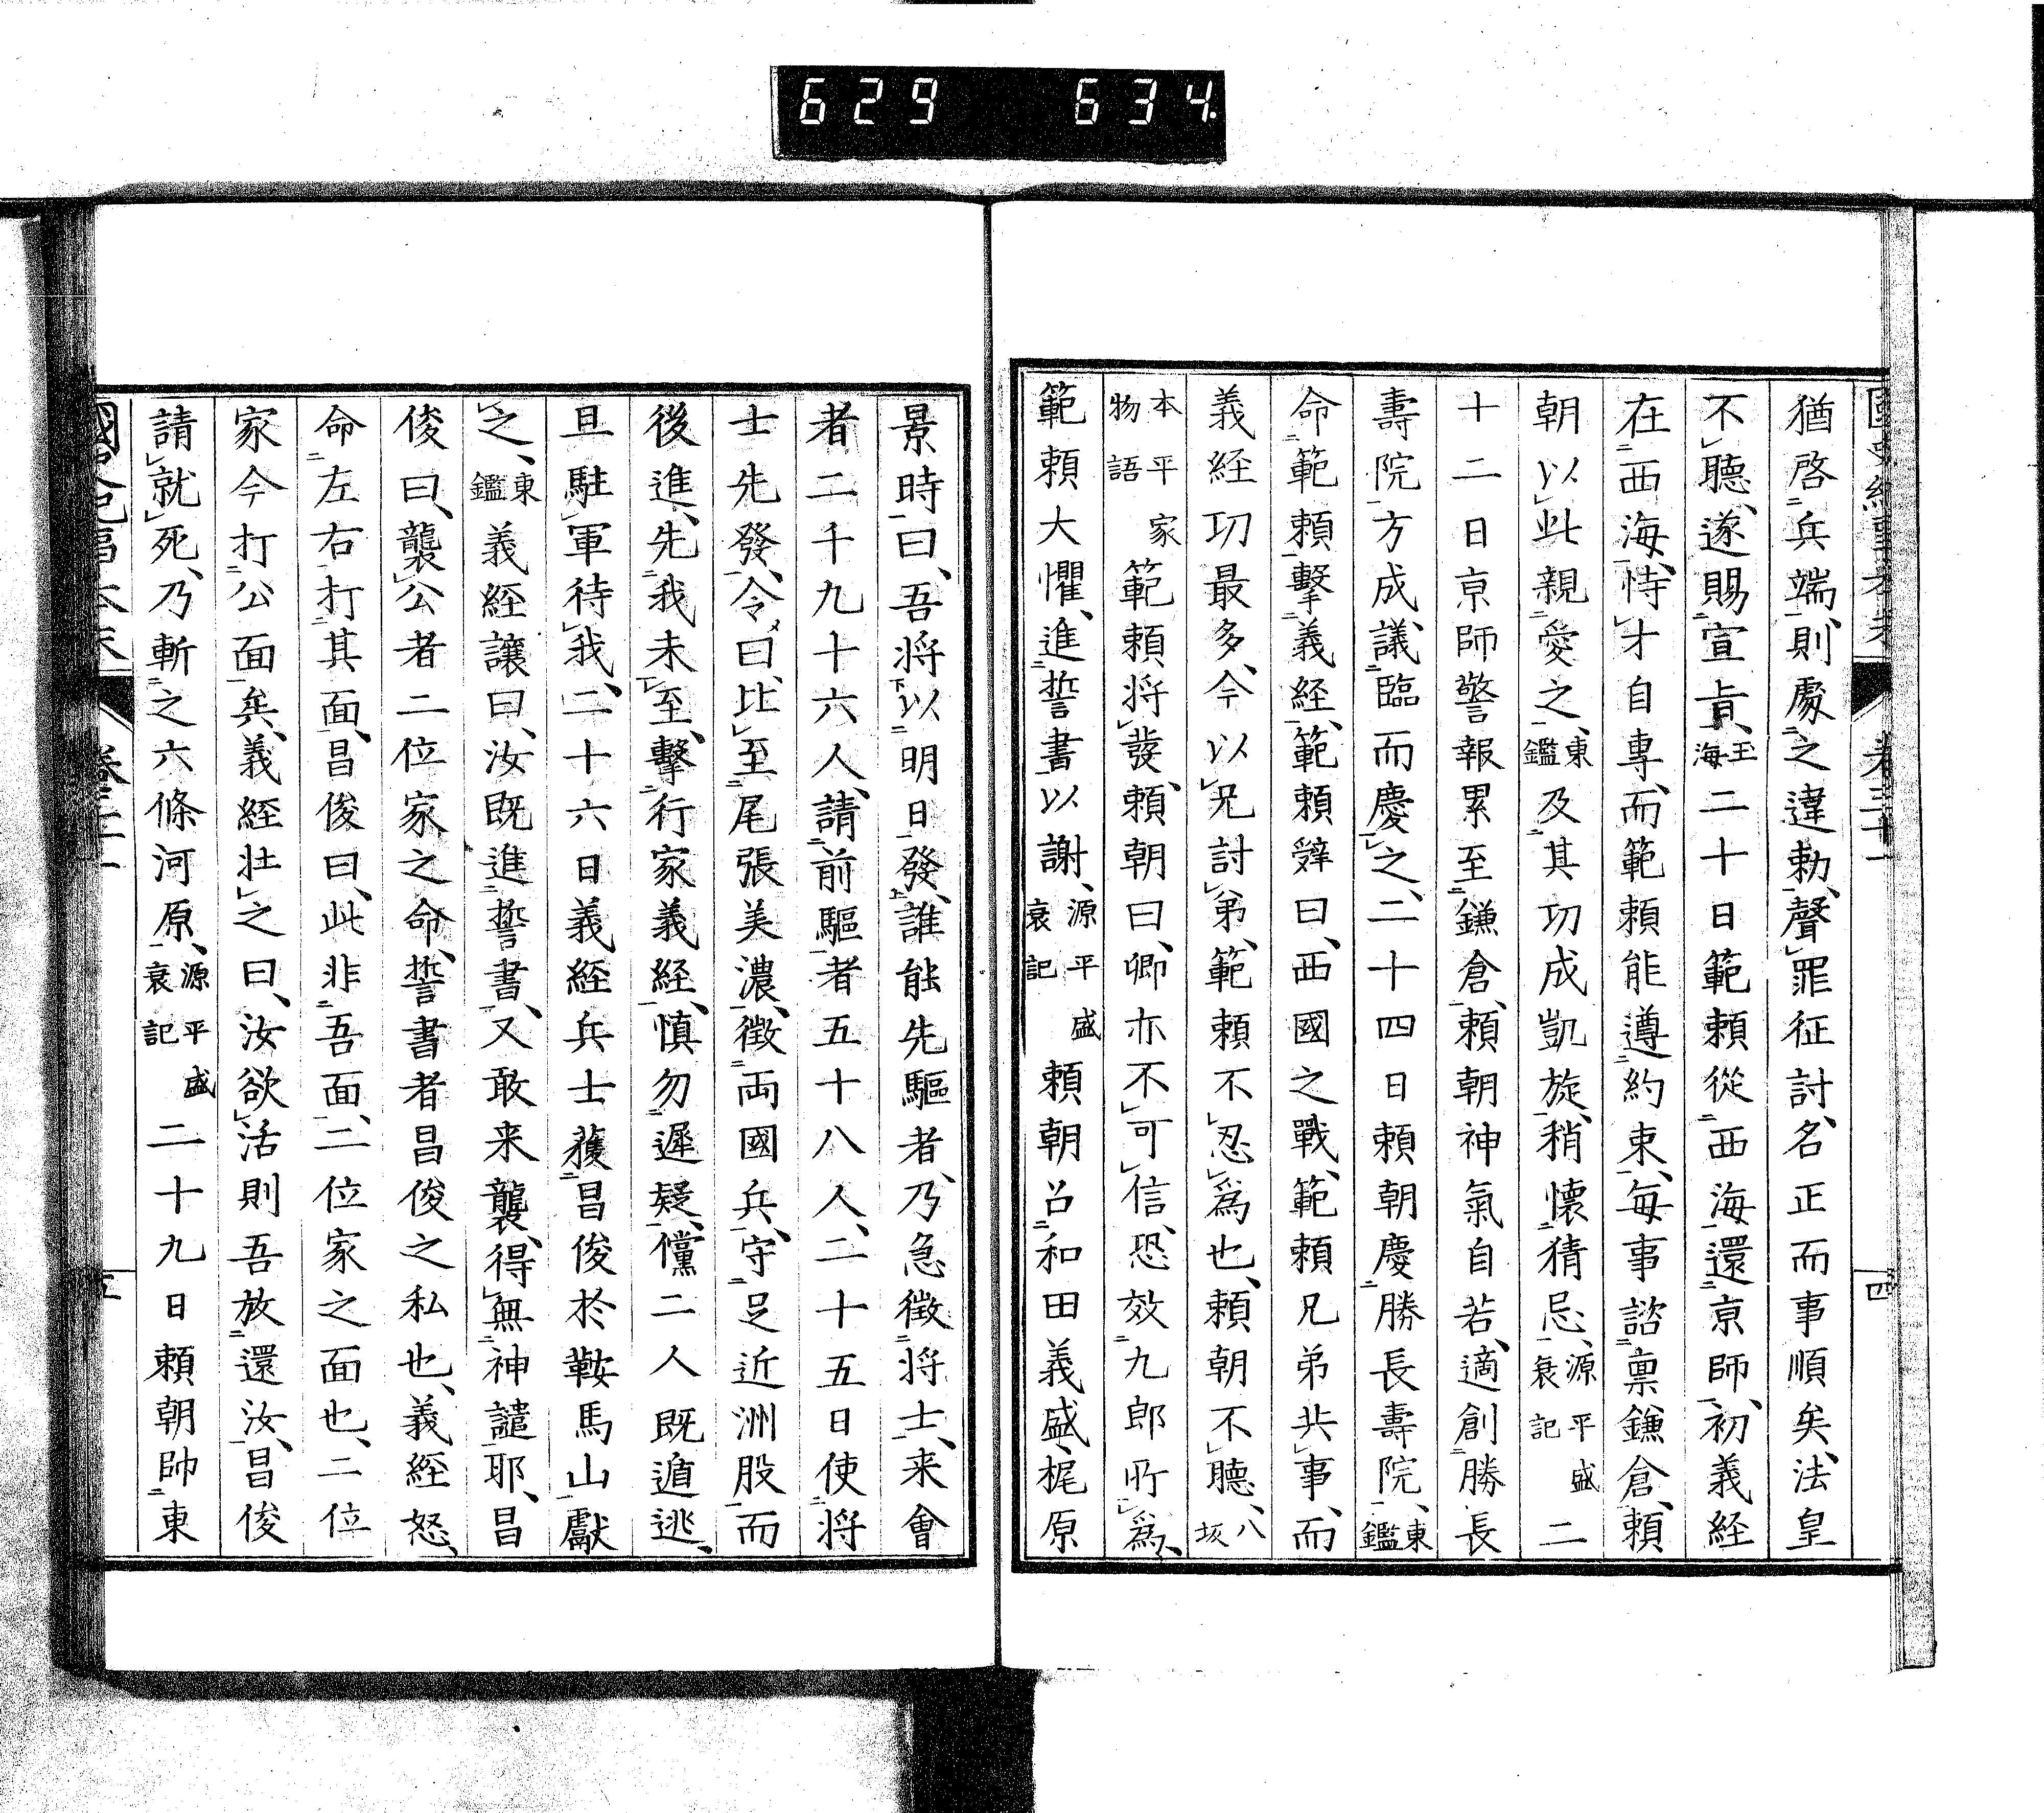 629 634.
猶啓兵端、則處之違勅、聲罪征討、名正而事順矣、法皇
不聽、遂賜宣旨、玉海二十日範頼從西海還京師、初義經
在西海、恃才自專、而範頼能遵約束、每事諮稟鎌倉、頼
朝以此親愛之、東鑑及其功成凱旋、稍懷猜忌、源平盛衰記二
十二日京師警報累至鎌倉、頼朝神氣自若、適創勝長
壽院方成、議臨而慶之、二十四日頼朝慶勝長壽院、東鑑
命範頼擊義經、範頼辭曰、西國之戰、範頼兄弟共事、而
義經功最多、今以兄討弟、範頼不忍爲也、頼朝不聽、八坂
本平家物語範頼将發、頼朝曰、卿亦不可信、恐效九郎所爲、
範頼大懼、進誓書以謝、源平盛衰記頼朝召和田義盛、梶原
四
景時曰、吾将以明日發、誰能先驅者、乃急徵将士、来會
者二千九十六人、請前驅者五十八人、二十五日使将
士先發、令曰、比至尾張美濃、徵両國兵、守足近洲股、而
後進、先我未至、擊行家義經、慎勿遲疑、儻二人既遁逃、
且駐軍待我、二十六日義經兵士獲昌俊於鞍馬山獻
之、東鑑義經讓曰、汝既進誓書、又敢来襲、得無神譴耶、昌
俊曰、襲公者二位家之命、誓書者昌俊之私也、義經怒、
命左右打其面、昌俊曰、此非吾面、二位家之面也、二位
家今打公面矣、義經壯之曰、汝欲活則吾放還汝、昌俊
請就死、乃斬之六條河原、源平盛衰記二十九日頼朝帥東